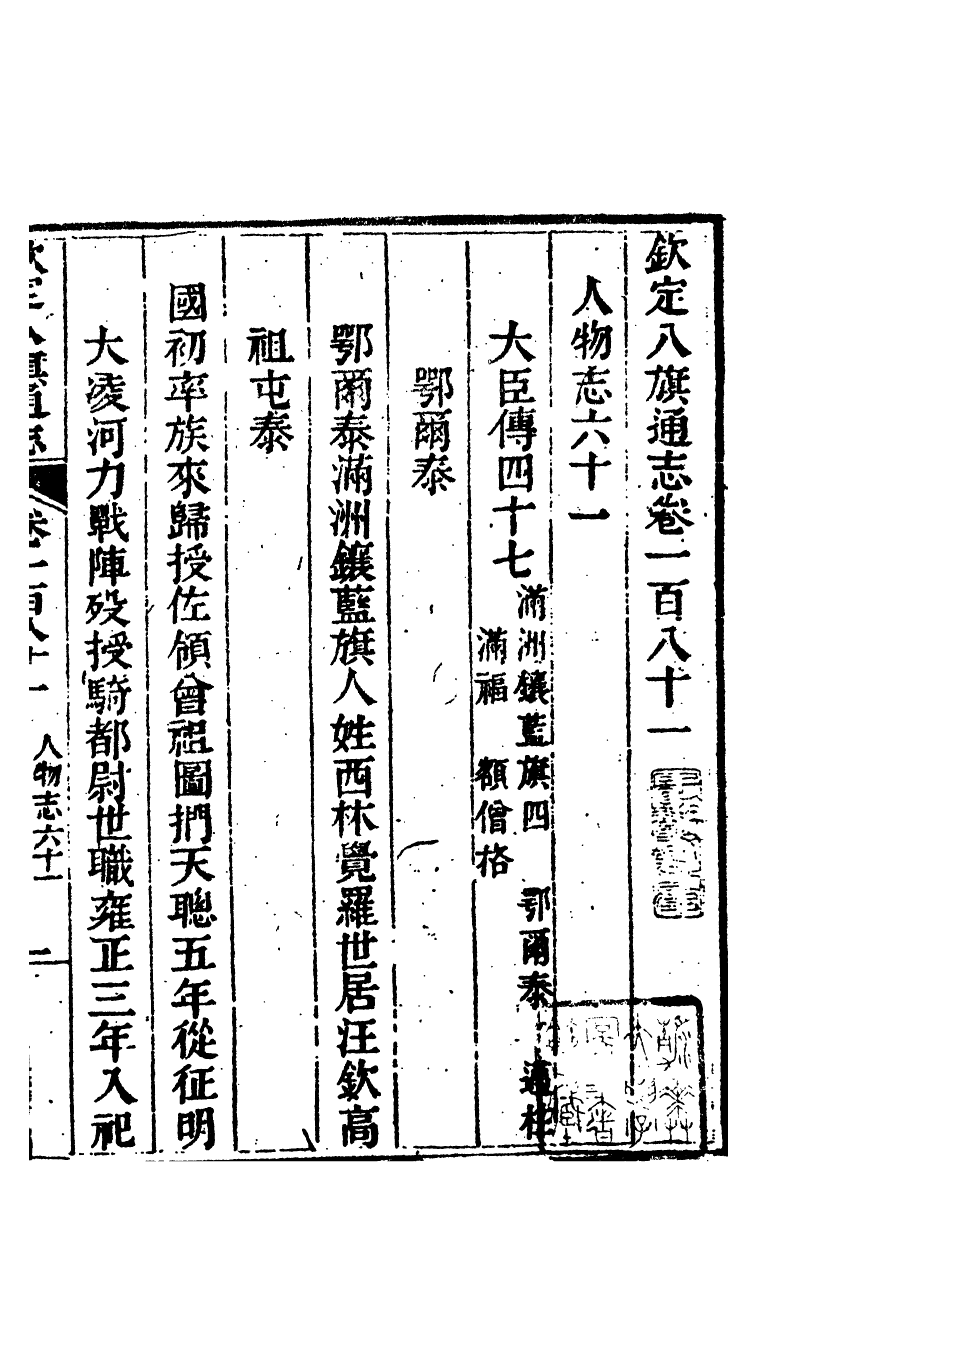 欽定八旗通志卷一百八十一
人物志六十一
大臣傳四十七
滿洲鑲藍旗四 鄂爾泰
滿福 額僧格
鄂爾泰
鄂爾泰滿洲鑲藍旗人姓西林覺羅世居汪欽高
祖屯泰
國初率族來歸授佐領曾祖圖捫天聰五年從征明
大凌河力戰陣歿授騎都尉世職雍正三年入祀
人物志六十一
一